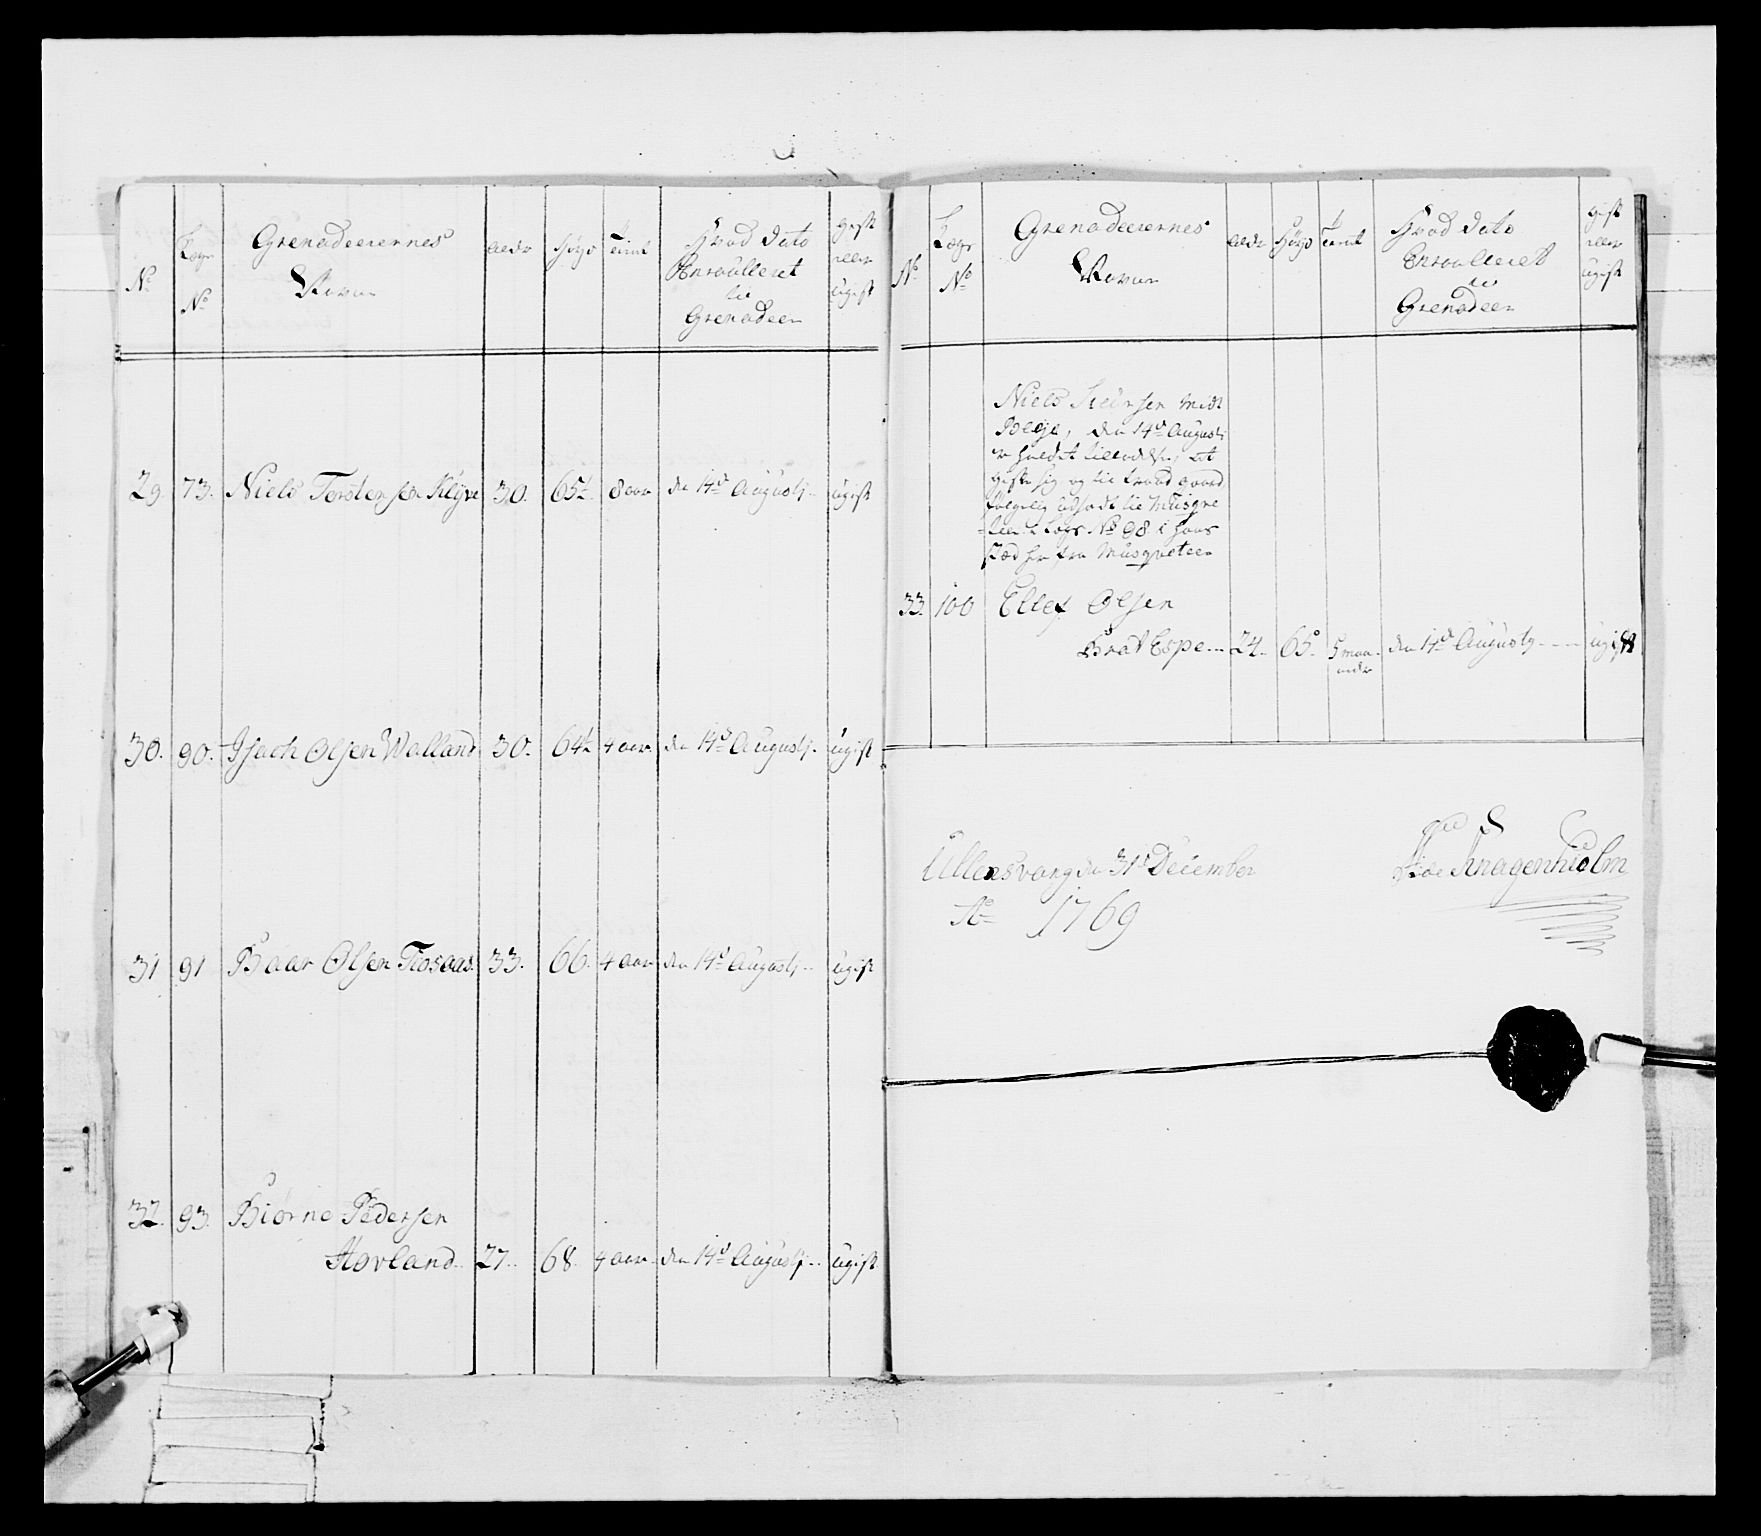 No | Lægs No | Grenadeerernes Navne | aldr | Høyd | Tient | Hvad Dato Enroulleret til Grenadeer | gift eller ugift
29. | 73. | Niels Torstensen Klyve | 30. | 65½. | 8 aar | den 14de Augustj | ugift
30. | 90. | Isach Olsen Walland | 30. | 64½ | 4 aar | den 14de Augustj | ugift
31 | 91 | Baar Olsen Tiosaas | 33. | 66. | 4 aar | den 14de Augustj | ugift
32. | 93. | Biørne Pedersen
Hovland | 27. | 68. | 4 aar | den 14de Augustj | ugift
No | Lægs No | Grenadeerernes Navne | aldr | Høyd | Tient | Hvad Dato Enroulleret til Grenadeer | gift eller ugift
Niels
den 14de Augustj
at
gifte sig og
No 98 i hans
Stæd her fra Musqueteer
33. | 100 | Ellef Olsen
Brat Espe | 24. | 65. | 5 maaneder | den 14de Augustj | ugift
Ullensvang den 31te December
Ao 1769
Knagenhielm